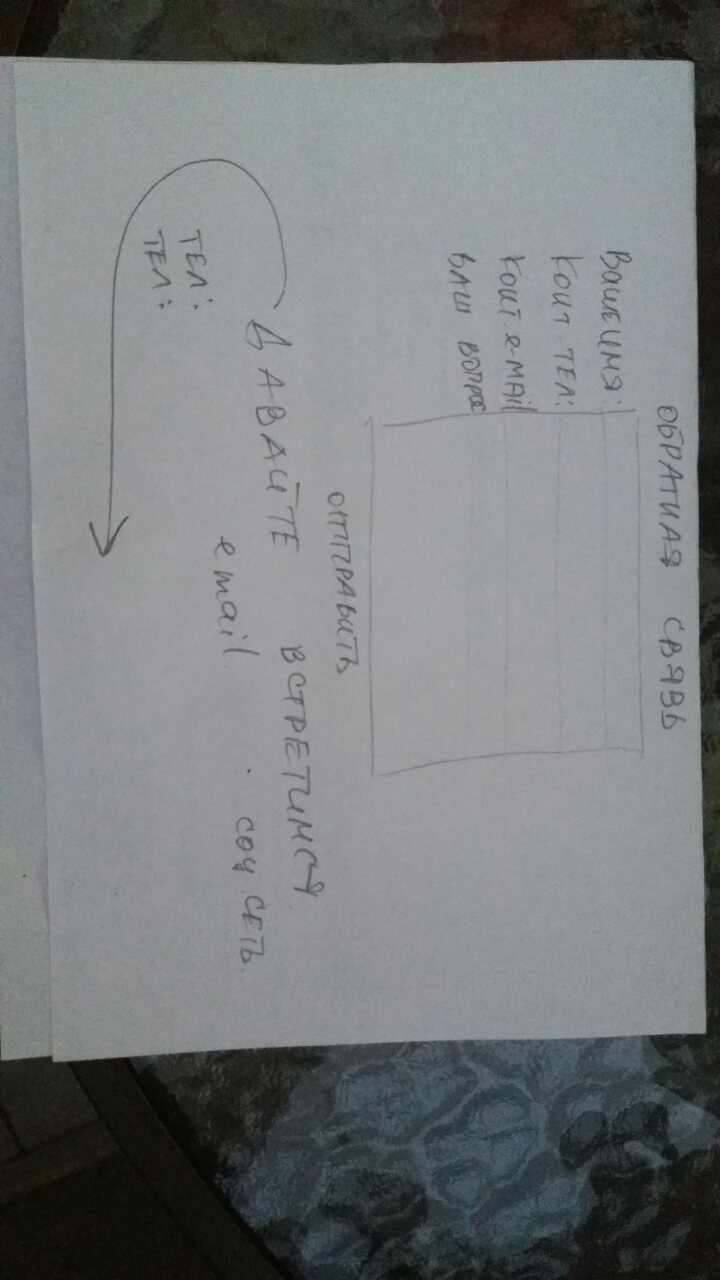 ОБРАТНАЯ СВЯЗЬ
Ваше имя:
Конт тел:
Конт. e-mail
Ваш вопрос
Отправить
Давайте встретимся
email. соц. сеть.
Тел:
Тел: